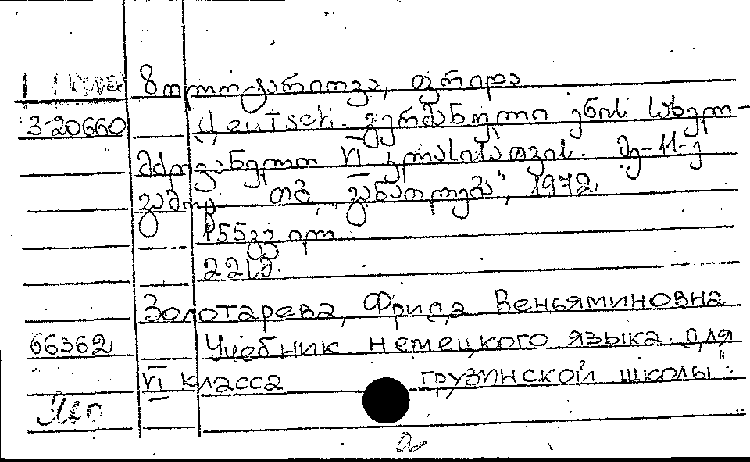 ზოლოტარიოვა, ფრიდა
3-20660 Deutsch. გერმანული ენის სახელ-
მძღვანელო VI კლასისათვის. მე-11-ე
გამოც. თბ., „განათლება", 1972.
155 გვ. ილ.
22 სმ.
Золотарева, Фрида Веньяминовна
66362 Учебник немецкого языка для
VI класса грузинской школы.